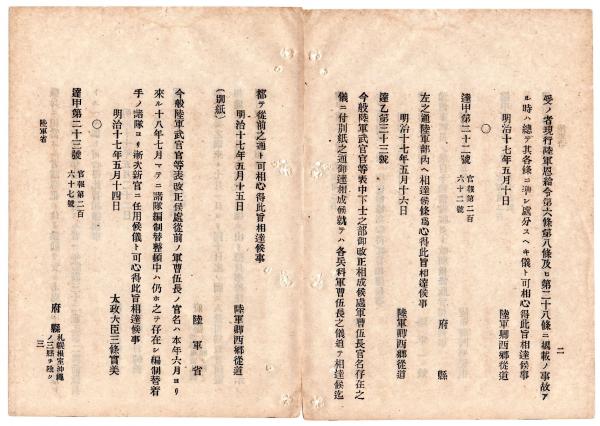 二
受ノ者現行陸軍恩給令第六條第八條及ヒ第二十八條ニ掲載ノ事故ア
ル時ハ總テ其各條ニ準シ處分スヘキ儀ト可相心得此旨相達候事
明治十七年五月十日　陸軍卿西郷從道
〇
達甲第二十二號　官報第二百六十二號
府縣
左之通陸軍部內ヘ相達候條爲心得此旨相達候事
明治十七年五月十六日　陸軍卿西郷從道
達乙第三十三號
今般陸軍武官官等表中下士之部御改正相成候處軍曹伍長官名存在之
儀ニ付別紙之通御達相成候就テハ各兵科軍曹伍長之儀追テ相達候迄
都テ從前之通ト可相心得此旨相達候事
明治十七年五月十五日　陸軍卿西郷從道
(別紙)
陸軍省
今般陸軍武官官等表改正候處從前ノ軍曹伍長ノ官名ハ本年六月ヨリ
來ル十八年七月マテニ諸隊編制替整頓中ハ仍ホ之テ存在シ編制替着
手ノ諸隊ヨリ漸次新官ニ任用候儀ト可心得此旨相達候事
明治十七年五月十四日　太政大臣三條實美
〇
達甲第二十三號　官報第二百六十七號
府縣　札幌根室沖繩ノ三縣ヲ除ク
陸軍省
三